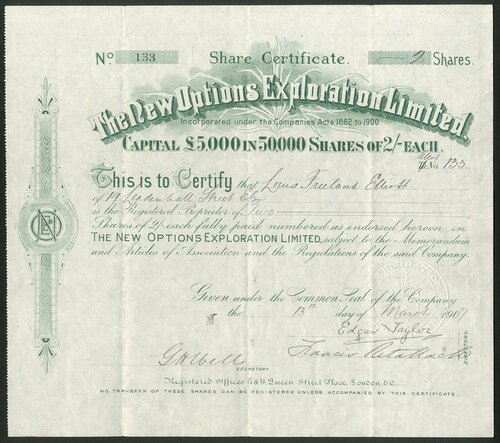 No 133 Share Certificate. 2 Shares.
The New Options Exploration Limited.
Incorporated under the Companies Acts 1862 to 1900
CAPITAL £5,000 IN 50,000 SHARES OF 2/- EACH.
No. 133.
This is to Certify that Louis Freeland Elliott
of 19 Leadenhall Street
is the Registered Proprietor of Two
Shares of 2/- each fully paid numbered as endorsed hereon in
THE NEW OPTIONS EXPLORATION LIMITED, subject to the Memorandum
and Articles of Association and the Regulations of the said Company.
Given under the Common Seal of the Company
the 13th day of March 1907
Edgar Taylor
Francis
DIRECTORS.
SECRETARY
Registered Offices 5 & 9, Queen Street Place, London, E.C.
NO TRANSFER OF THESE SHARES CAN BE REGISTERED UNLESS ACCOMPANIED BY THIS CERTIFICATE.